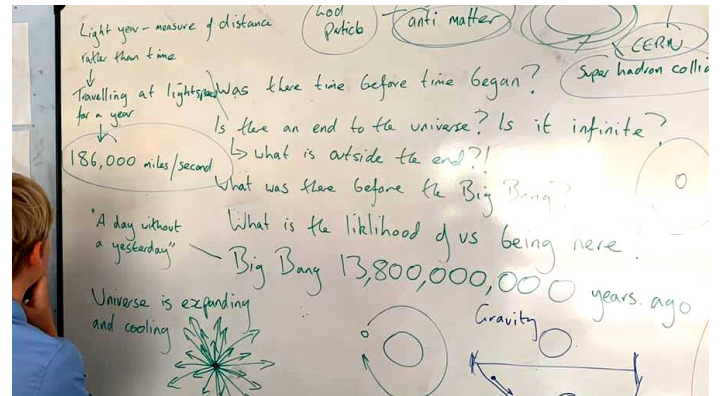 Light year - measure of distance
rather than time
Travelling at lightspeed
for a year
186,000 miles/second
"A day without
a yesterday"
Universe is expanding
and cooling
God
Particle
anti matter
CERN
Super hadron collid
Was there time before time began?
Is there an end to the universe? Is it infinite?
What is outside the end?!
What was there before the Big Bang?
What is the liklihood of us being here.
Big Bang 13,800,000,000 years. ago
Gravity